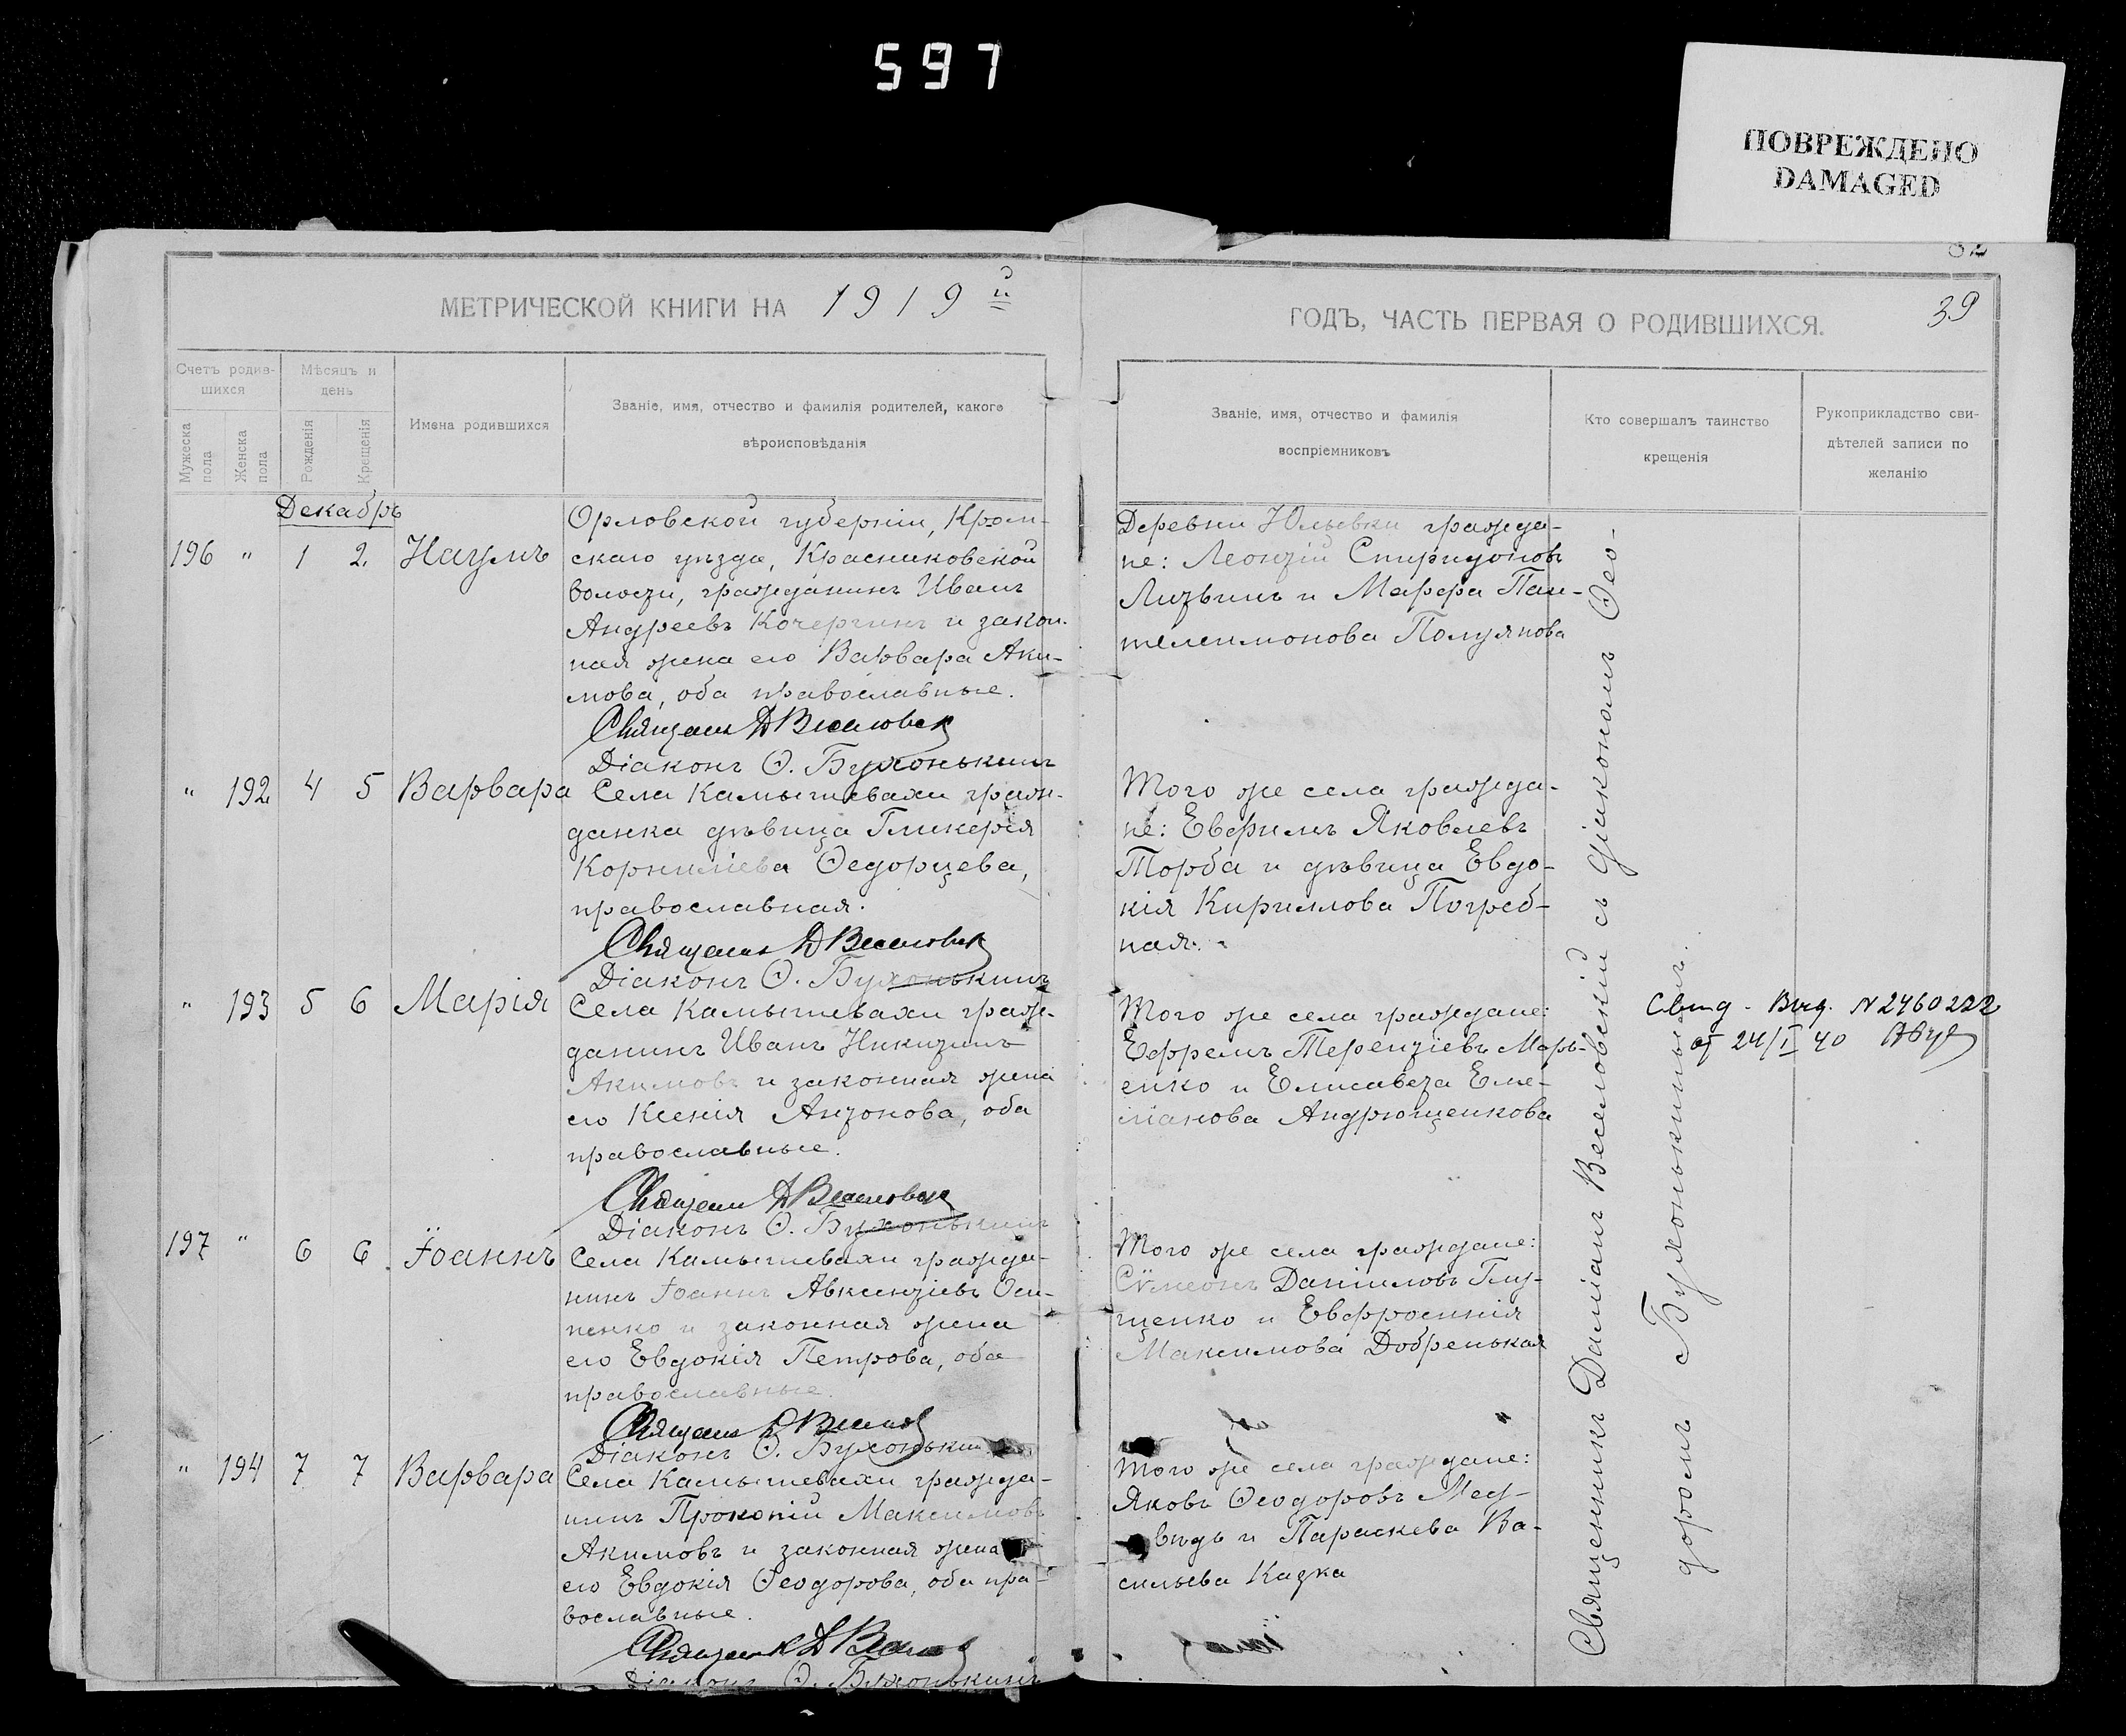 597
ПОВРЕЖДЕНО
DAMAGED
МЕТРИЧЕСКОЙ КНИГИ НА 1919 й
ГОДЪ, ЧАСТЬ ПЕРВАЯ О РОДИВШИХСЯ.
39
Счетъ родив-
шихся
Мужеска
пола
Женска
пола
Мѣсяцъ и
день
Рожденія
Крещенія
Имена родившихся
Званіе, имя, отчество и фамилія родителей, какого
вѣроисповѣданія
Званіе, имя, отчество и фамилія
воспріемниковъ
Кто совершалъ таинство
крещенія
Рукоприкладство сви-
дѣтелей записи по
желанію
Декабрь
196 " 1 2. Наумъ
Орловской губерніи, Кром-
скаго уѣзда, Красниковской
волости, гражданинъ Иванъ
Андреевъ Кочергинъ и закон-
ная жена его Варвара Аки-
мова, оба православные.
Священ Д Веселовск
Діаконъ Ѳ. Бухонькинъ
Деревни Юльевки гражда-
не: Леонтій Спиридоновъ
Литвинъ и Марфа Пан-
телеимонова Полуянова
" 192 4 5 Варвара
Села Камышевахи граж-
данка дѣвица Гликерія
Корниліева Ѳедорцева,
православная.
Священ Д Веселовск
Діаконъ Ѳ. Бухонькинъ
Того же села гражда-
не: Евфимъ Яковлевъ
Торба и дѣвица Евдо-
кія Кириллова Погреб-
ная.
" 193 5 6 Марія
Села Камышевахи граж-
данинъ Иванъ Никитинъ
Акимовъ и законная жена
его Ксенія Антонова, оба
православные.
Священ Д Веселовск
Діаконъ Ѳ. Бухонькинъ
Того же села граждане:
Ефремъ Терентіевъ Марь-
енко и Елисавета Еме-
ліанова Андрющенкова
Свид. Выд. N 2460222
от 24/I 40
197 " 6 6 Іоаннъ
Села Камышевахи гражда-
нинъ Іоаннъ Авксентіевъ Оси-
пенко и законная жена
его Евдокія Петрова, оба
православные.
Священ Д Веселов
Діаконъ Ѳ. Бухонькин
Того же села граждане:
Сѵмеонъ Даніиловъ Глу-
щенко и Евфросинія
Максимова Добренькая
" 194 7 7 Варвара
Села Камышевахи гражда-
нинъ Прокопій Максимовъ
Акимовъ и законная жена
его Евдокія Ѳеодорова, оба пра-
вославные.
Священ Д Весел
Діаконъ Ѳ. Бухонькинъ
Того же села граждане:
Яковъ Ѳеодоровъ Мед-
вѣдь и Параскева Ва-
сильева Казка
Священникъ Даміанъ Веселовскій съ діакономъ Ѳео-
доромъ Бухонькинымъ.